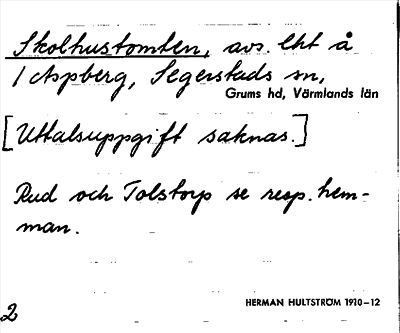 Skolhustomten, avs. lht å
1 Aspberg, Segerstads sn,
Grums hd, Värmlands län
[Uttalsuppgift saknas.]
Rud och Tolstorp se resp. hem-
man.
HERMAN HULTSTRÖM 1910-12
2